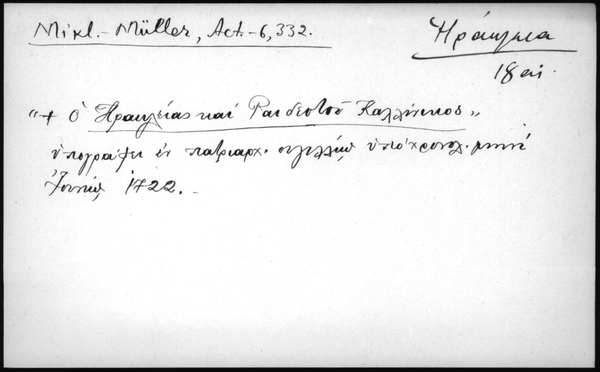 Mikl.-Müller, Act.-6, 332.
Ἡράκλεια
18 αἰ.
"+ ὁ Ἡρακλείας καὶ Ραιδεστοῦ Καλλίνικος"
ὑπογράφει ἐν πατριαρχ. σιγιλλίῳ ὑπὸ χρονολ. μηνὶ
Ἰουνίῳ 1722.-